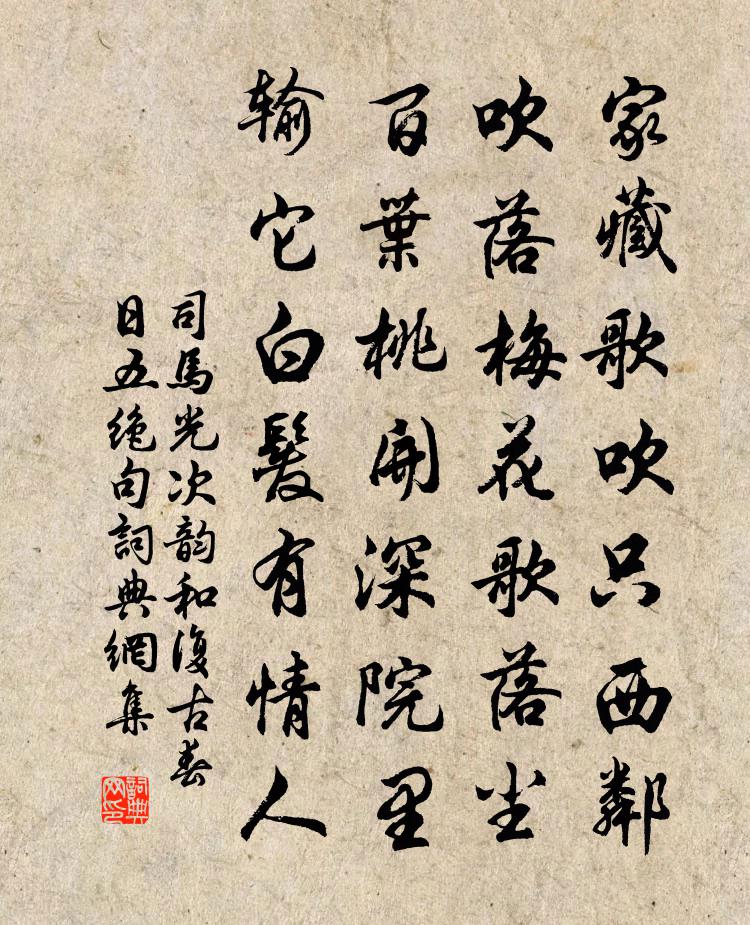 家藏歌吹只西鄰
吹落梅花歌落尘
百葉桃開深院里
輸它白髮有情人
司馬光次韵和復古春
日五絶句詞典網集
詞典
网印